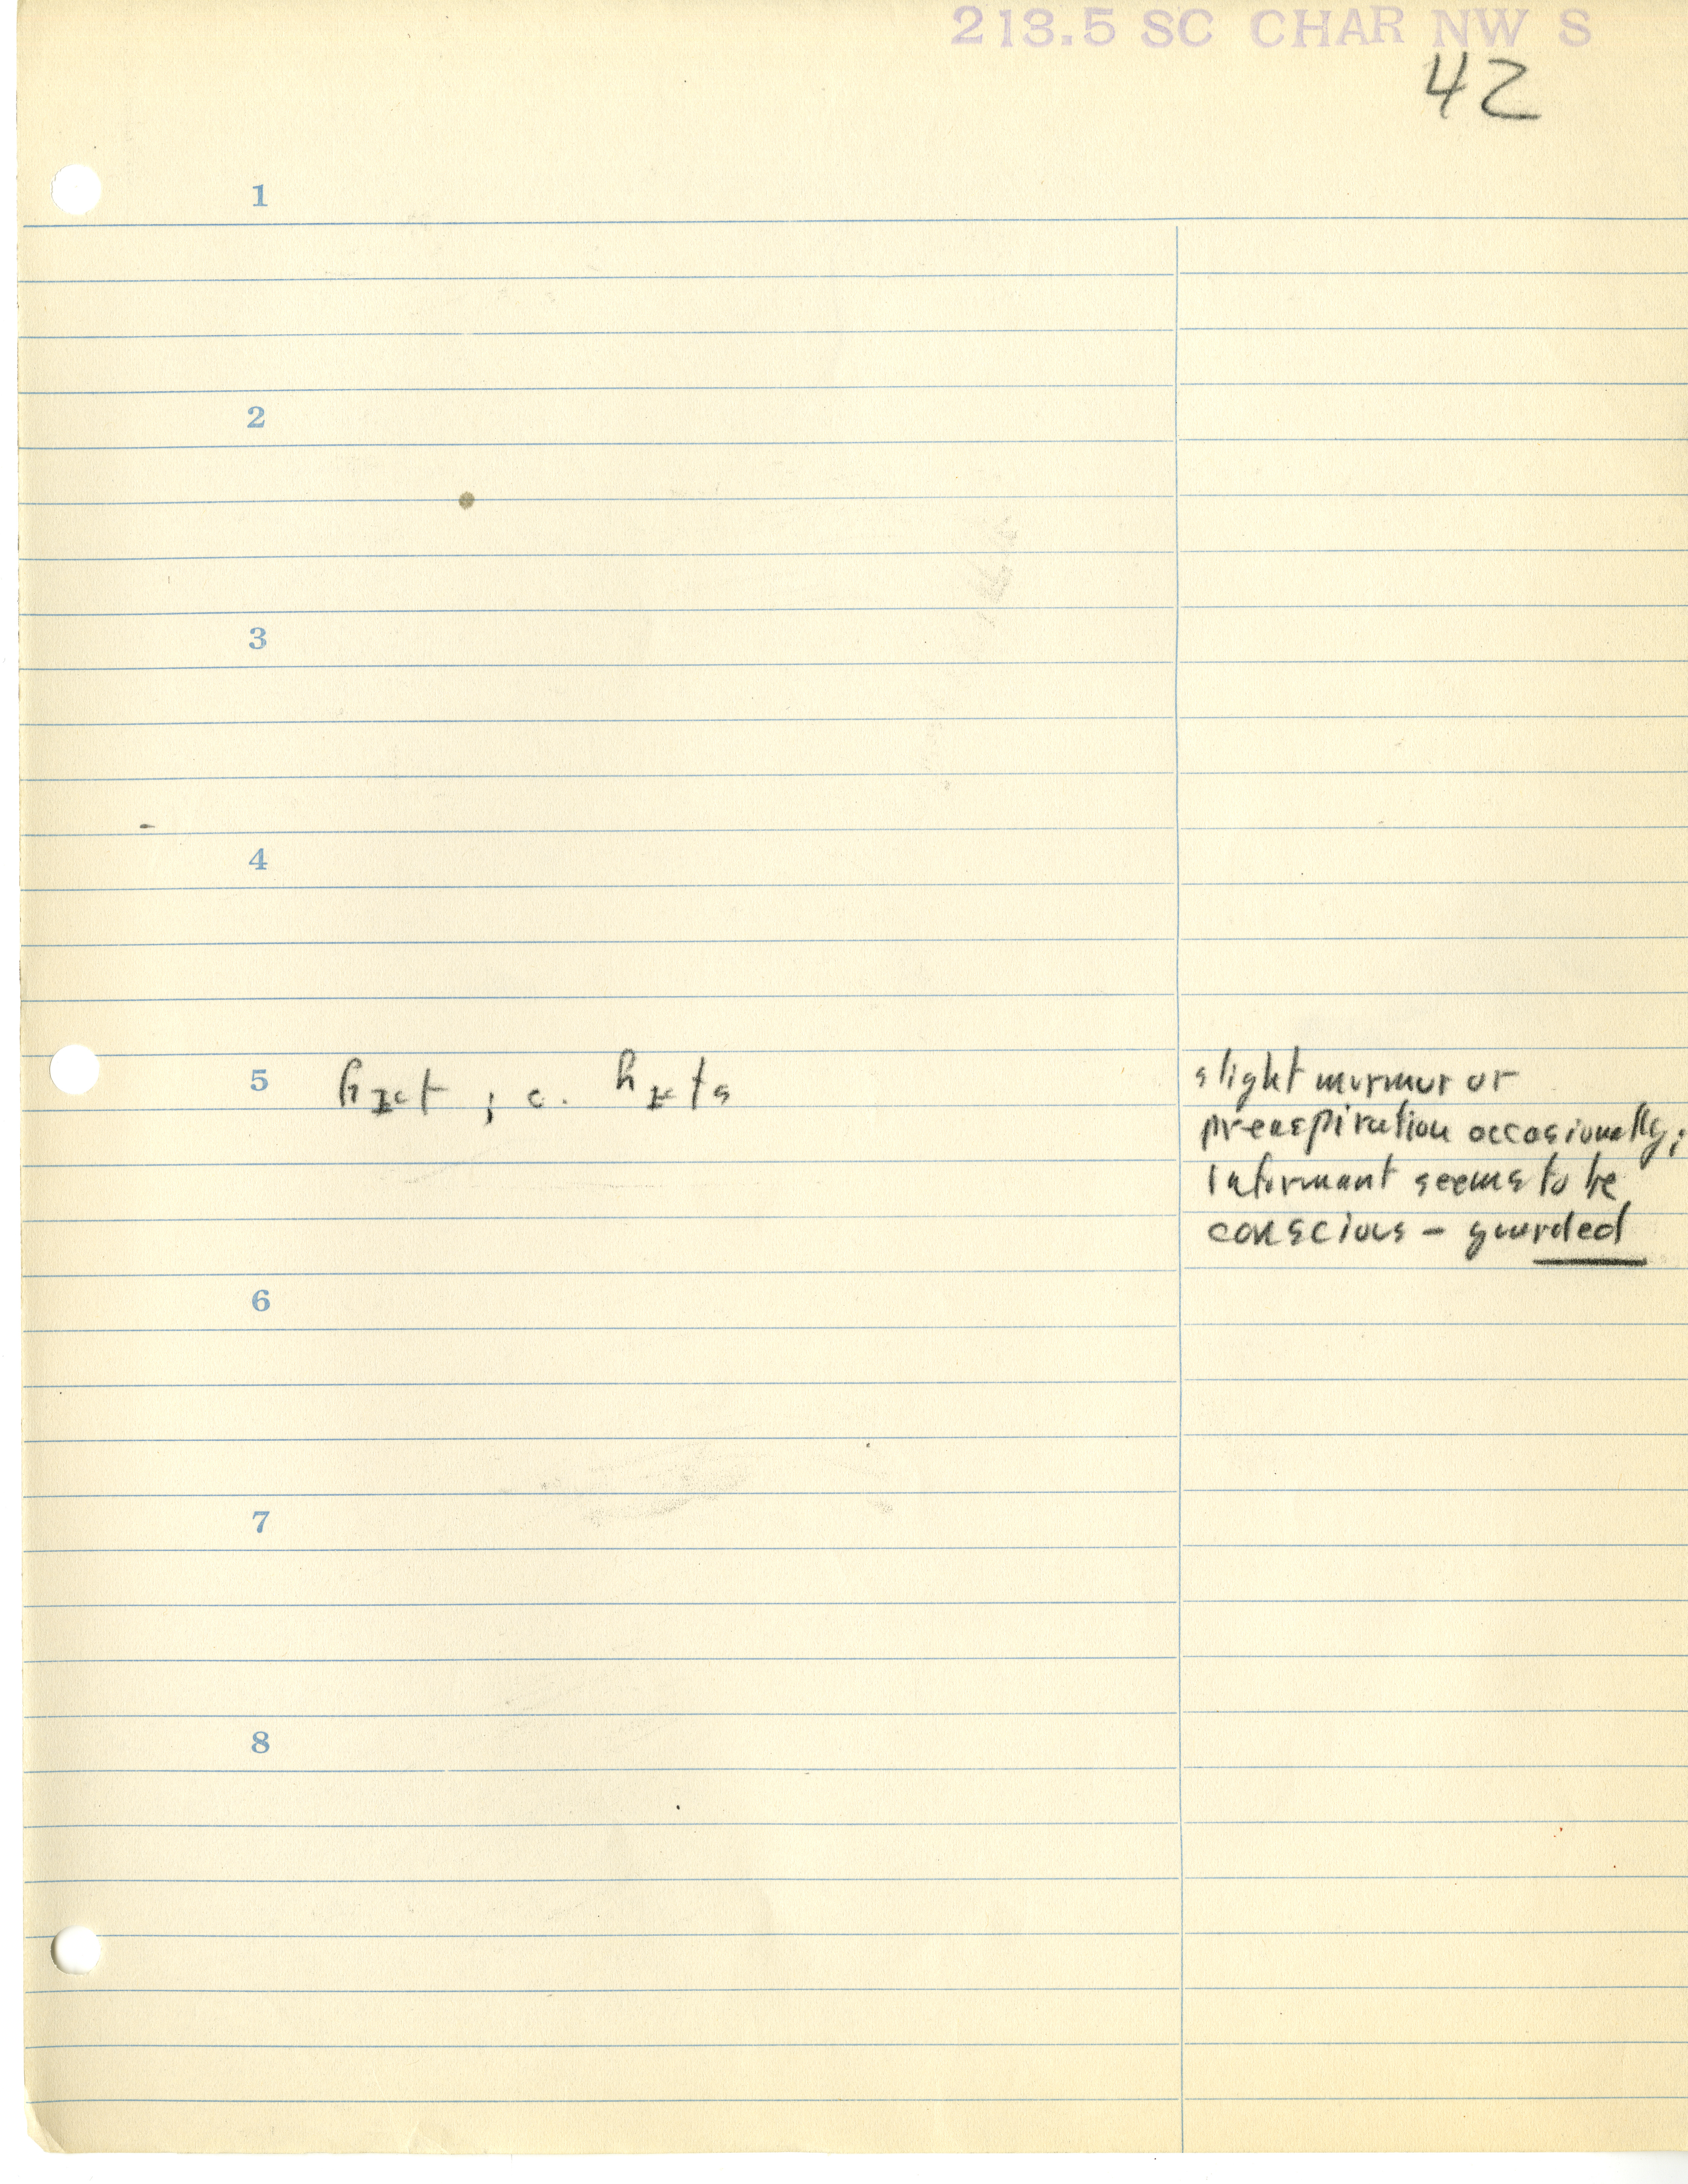 213.5 SC CHAR NW S
42
1
2
3
4
5 ; c.
slight murmur or
preaspiration occasionally;
informant seems to be
conscious – guarded
6
7
8